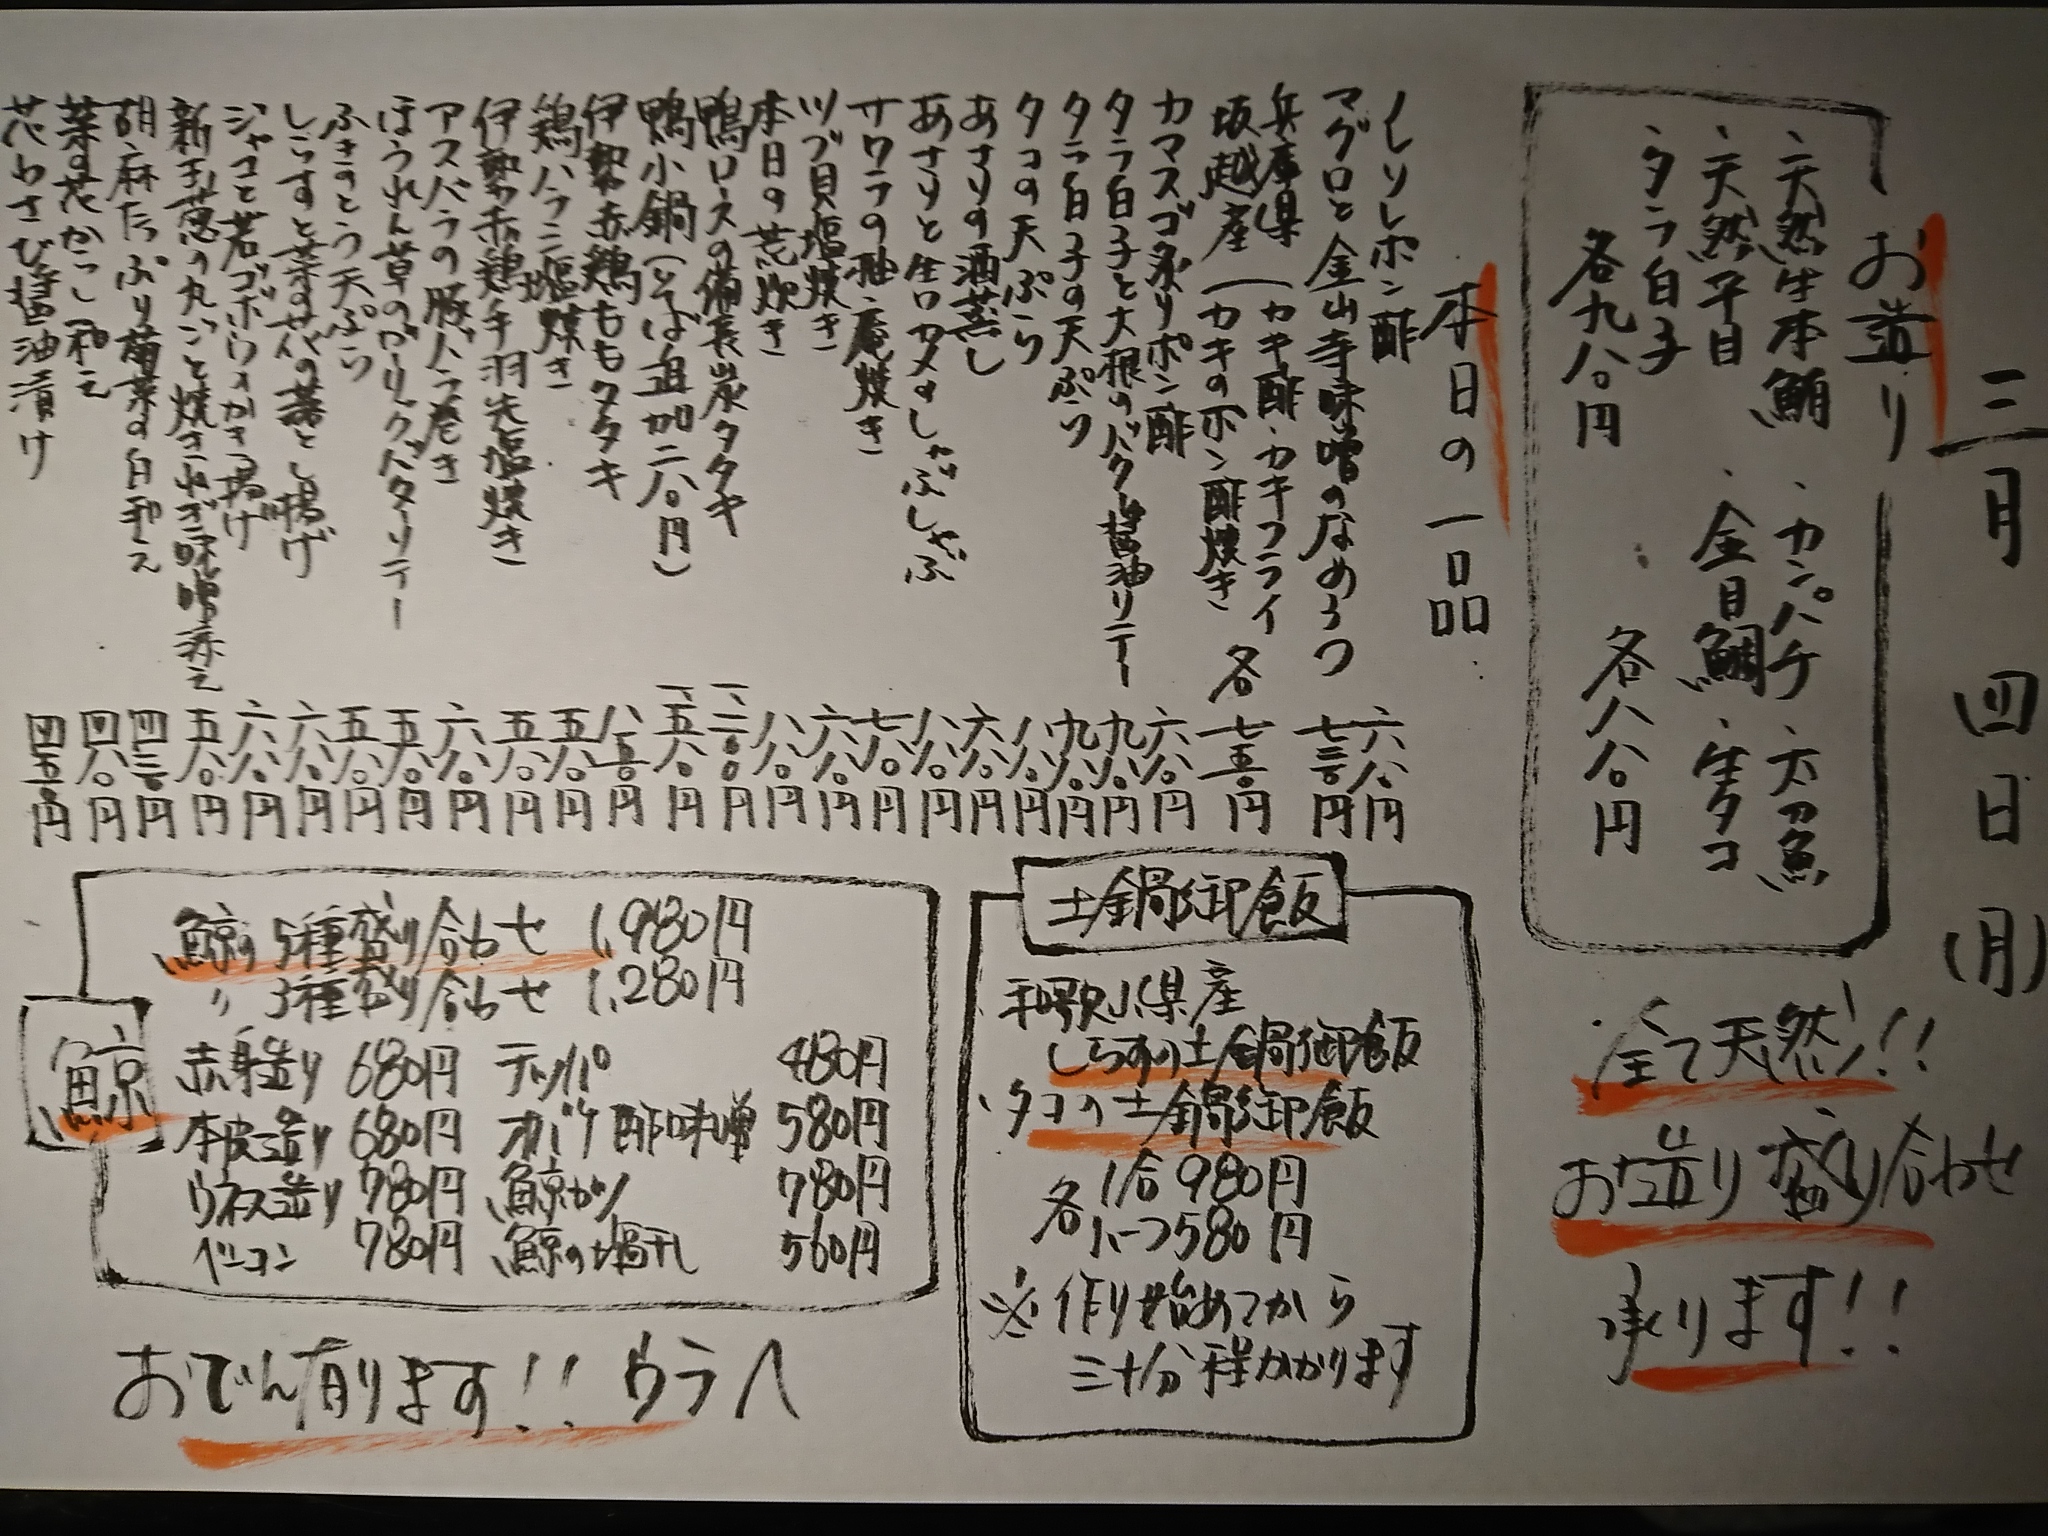 三月四日(月)
お造り
、天然生本鮪 、カンパチ 、太刀魚
、天然平目 、金目鯛 、生タコ
、タラ白子
各九八〇円 各八八〇円
全て天然!!
お造り盛り合わせ
承ります!!
本日の一品
ポン酢 六八〇円
マグロと金山寺味噌のなめろう 七三〇円
兵庫県 坂越産 (カキ酢・カキフライ カキのポン酢焼き 各 七五〇円
カマスゴ炙りポン酢 六八〇円
タラ白子と大根のバター醤油ソテー 九八〇円
タラ白子の天ぷら 九八〇円
タコの天ぷら 八八〇円
あさりの酒蒸し 六八〇円
あさりと生ワカメのしゃぶしゃぶ 八八〇円
サワラの柚庵焼き 七八〇円
ツブ貝塩焼き 六八〇円
本日の荒炊き 八八〇円
鴨ロースの備長炭タタキ 一、二〇〇円
鴨小鍋(そば追加二八〇円) 一、五八〇円
伊勢赤鶏ももタタキ 八五〇円
鶏ハラミ塩焼き 五八〇円
伊勢赤鶏手羽先塩焼き 五八〇円
アスパラの豚バラ巻き 六八〇円
ほうれん草のガーリックバターソテー 五八〇円
ふきのとう天ぷら 五八〇円
しらすと菜の花の落とし揚げ 六八〇円
ジャコと若ゴボウのかき揚げ 六八〇円
新玉葱の丸ごと焼きねぎ味噌添え 五八〇円
胡麻たっぷり菊菜の白和え 四三〇円
菜の花からし和え 四八〇円
花わさび醤油漬け 四五〇円
土鍋御飯
、和歌山県産
しらすの土鍋御飯
、タコの土鍋御飯
各 1合980円
ハーフ580円
※作り始めてから
三十分程かかります
鯨
鯨の5種盛り合わせ 1,980円
〃 3種盛り合わせ 1,280円
赤身造り 680円 テッパ 480円
本皮造り 680円 オバケ酢味噌 580円
ウネス造り 780円 鯨カツ 780円
ベーコン 780円 鯨の塩干し 560円
おでん有ります!! ウラへ